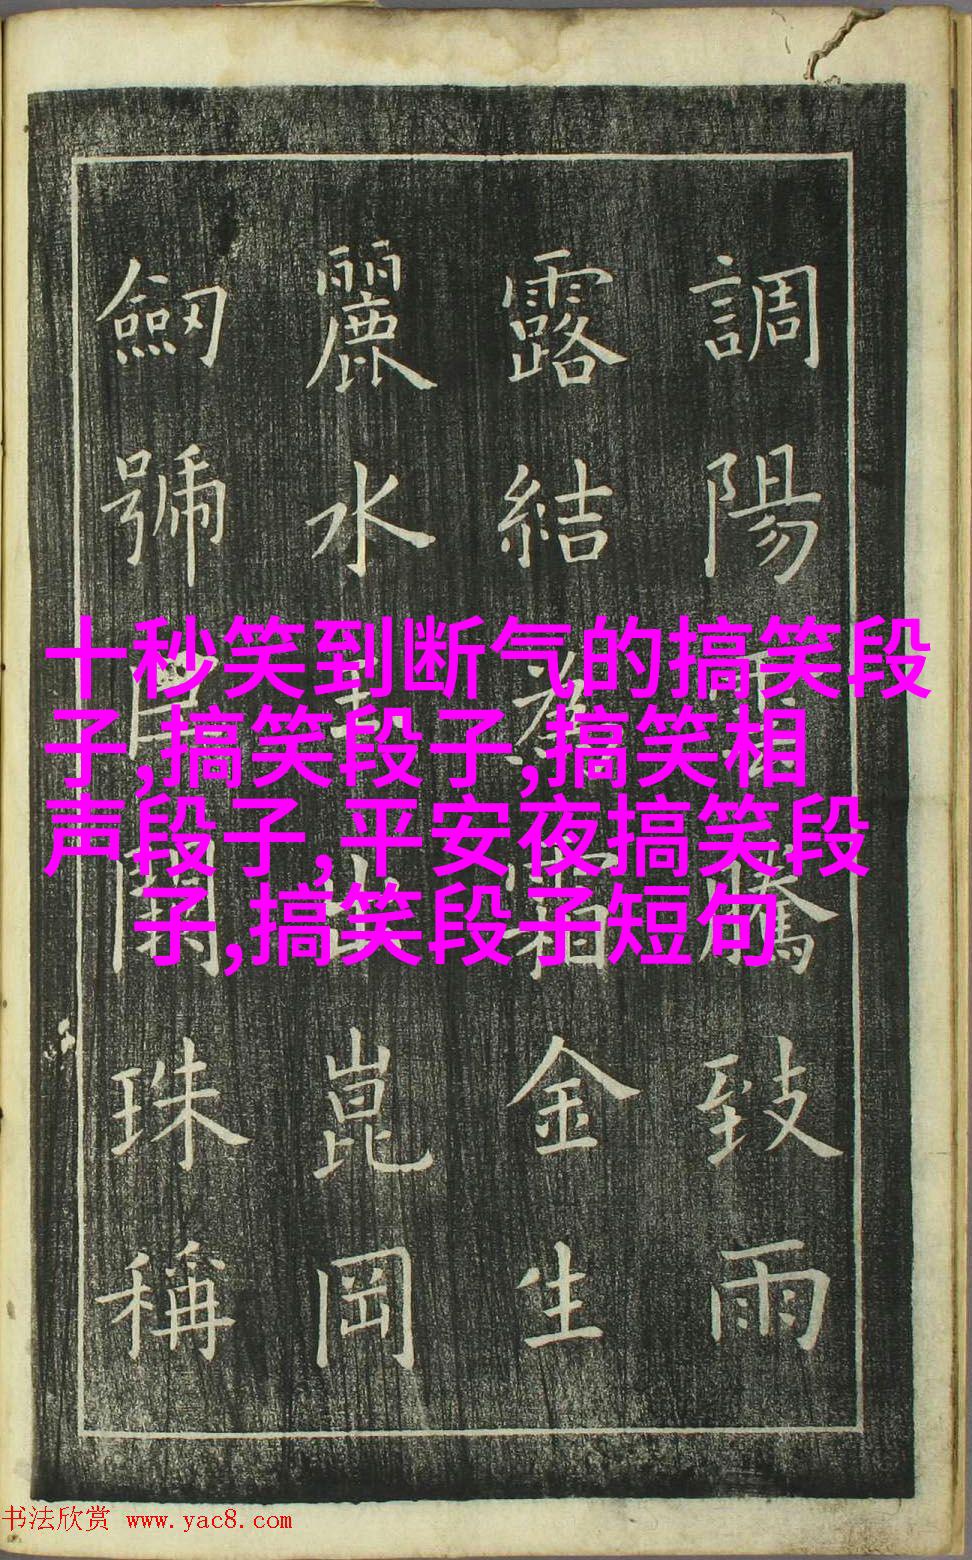 調陽騰致雨
露結霜金生
麗水崑岡
劒號巨闕珠稱
十秒笑到断气的搞笑段
子,搞笑段子,搞笑相
声段子,平安夜搞笑段
子,搞笑段子短句
书法欣赏 www.yac8.com